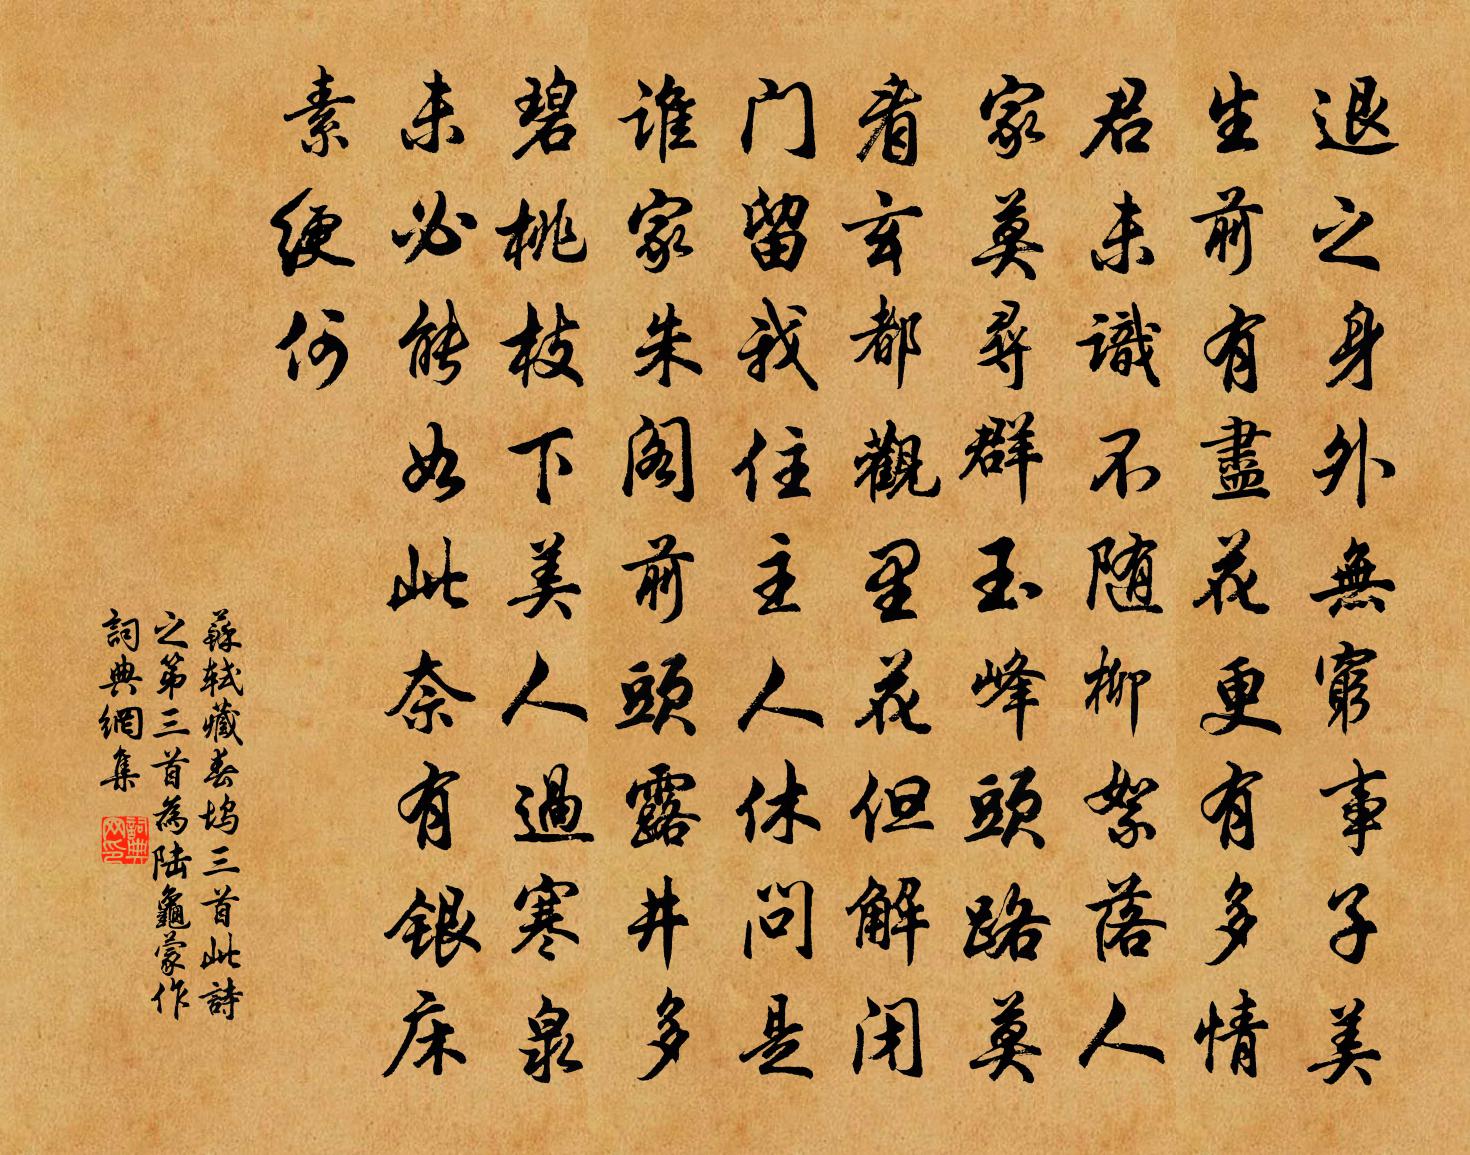 退之身外無窮事子美
生前有盡花更有多情
君未識不随柳絮落人
家莫尋群玉峰頭路莫
看玄都觀里花但解閉
门留我住主人休問是
谁家朱阁前頭露井多
碧桃枝下美人過寒泉
未必能如此奈有银床
素绠何
蘇轼藏春坞三首此詩
之第三首為陆龜蒙作
詞典網集
詞典網印